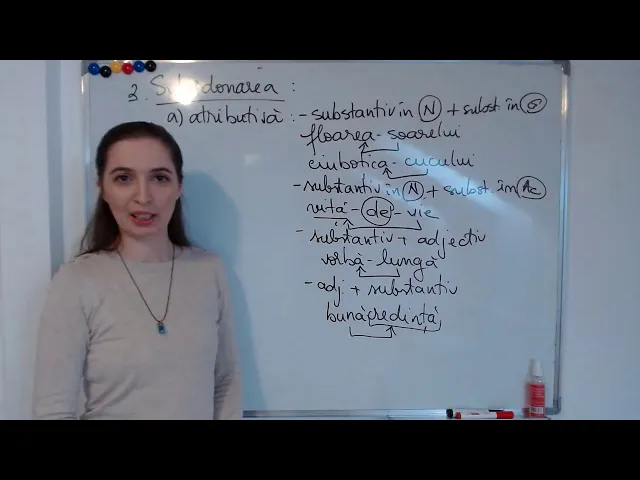 3. Subordonarea :
a) atributivă : - substantiv în N + subst. în G
floarea-soarelui
ciubotica-cucului
- substantiv în N + subst. în Ac
viță-de-vie
- substantiv + adjectiv
vorbă-lungă
- adj. + substantiv
bunăcredință